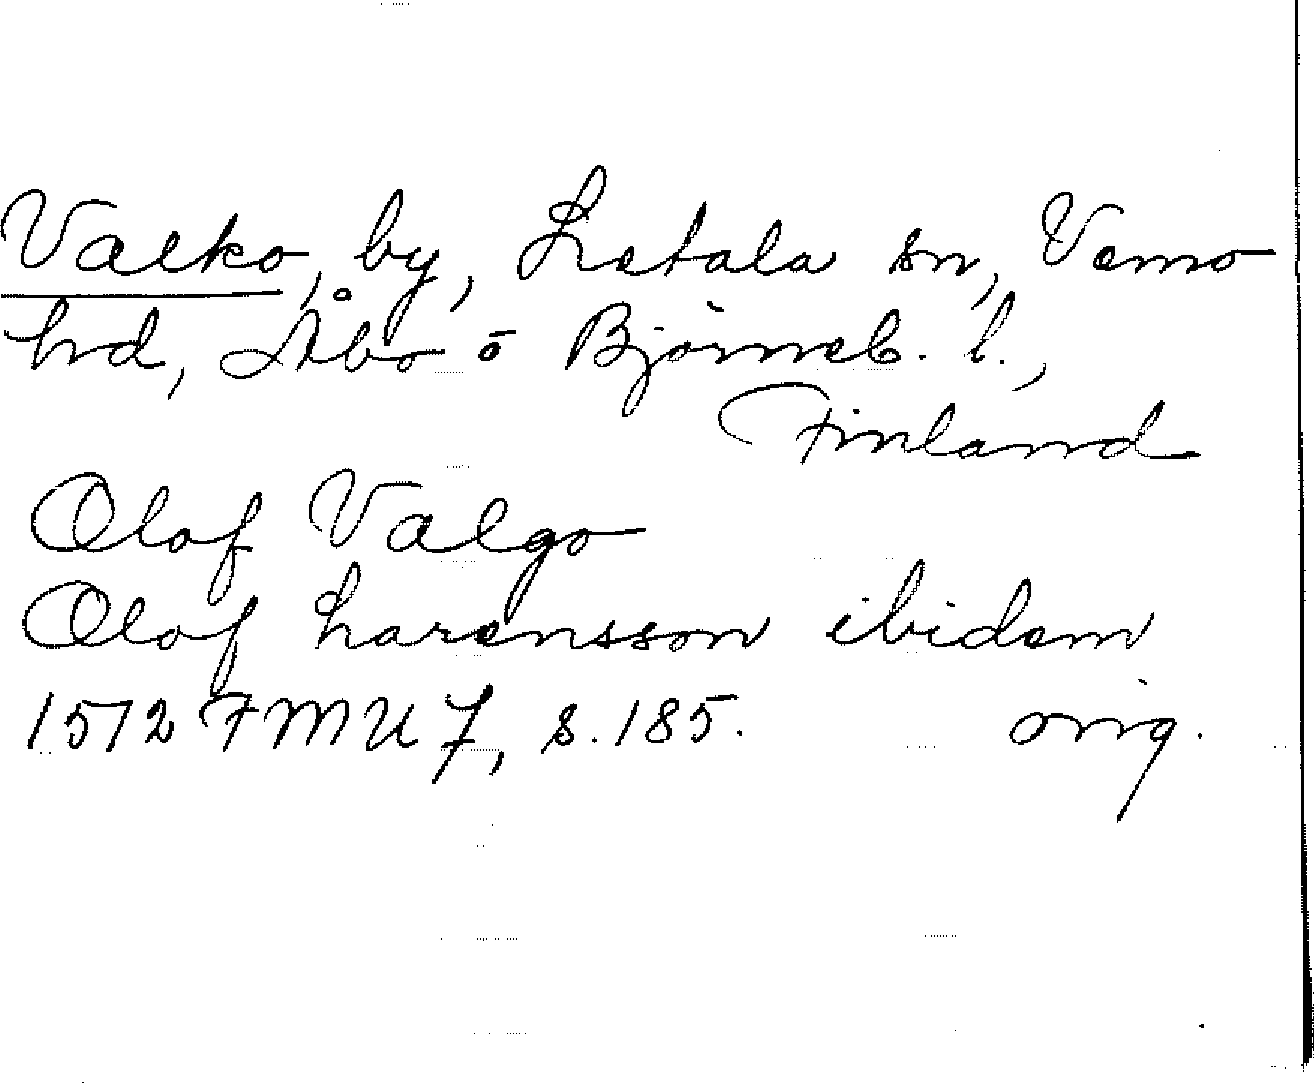 Valko, by, Letala sn, Vemo
hrd, Åbo o Björneb. l.,
Finland
Olof Valgo
Olof Larensson ibidem
1572 FMU 7, s. 185. orig.